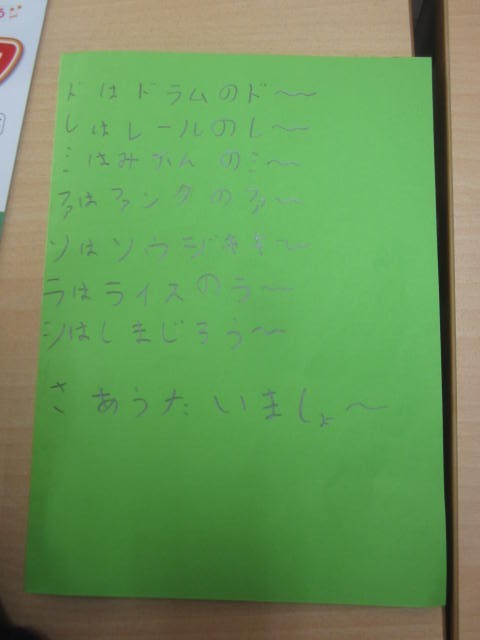 ドはドラムのド〜〜
レはレールのレ〜
ミはみかんのミ〜
ファはファンタのファ〜
ソはソウジキキ〜
ラはライスのラ〜
シはしまじろう〜
さあうたいましょ〜